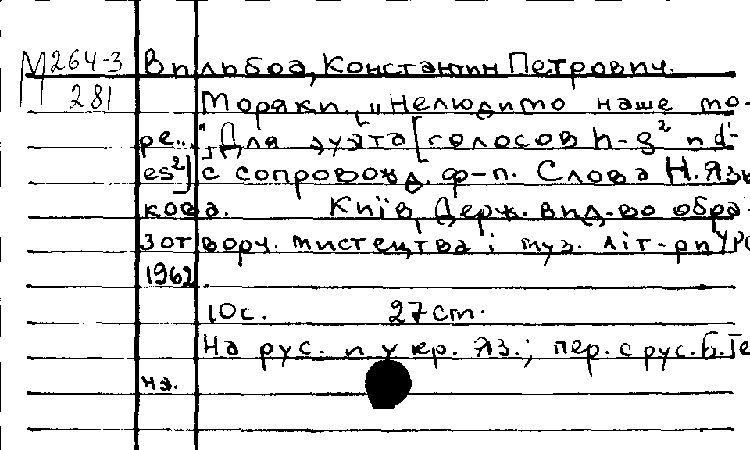 М 264-3
281
Вильбоа, Константин Петрович.
Моряки. ["Нелюдимо наше мо-
ре..."] Для дуэта [голосов h-g² и d'-
es²] с сопровожд. ф-п. Слова Н. Язы
кова. Київ, Держ. вид-во обра-
зотворч. мистецтва і муз. літ-ри УРС
1962.
10с. 27 ст.
На рус. и укр. яз.; пер. с рус. Б. Те
на.